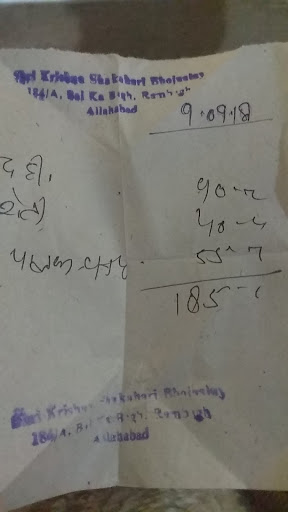 Shri Krishna Shakahari Bhojnalay
184/A, Bai Ka Bagh, Rambagh
Allahabad
9.09.18
दही, 90-
रोटी 40-
पालक पनीर 55-
185-
Shri Krishna Shakahari Bhojnalay
184/A, Bai Ka Bagh, Rambagh
Allahabad